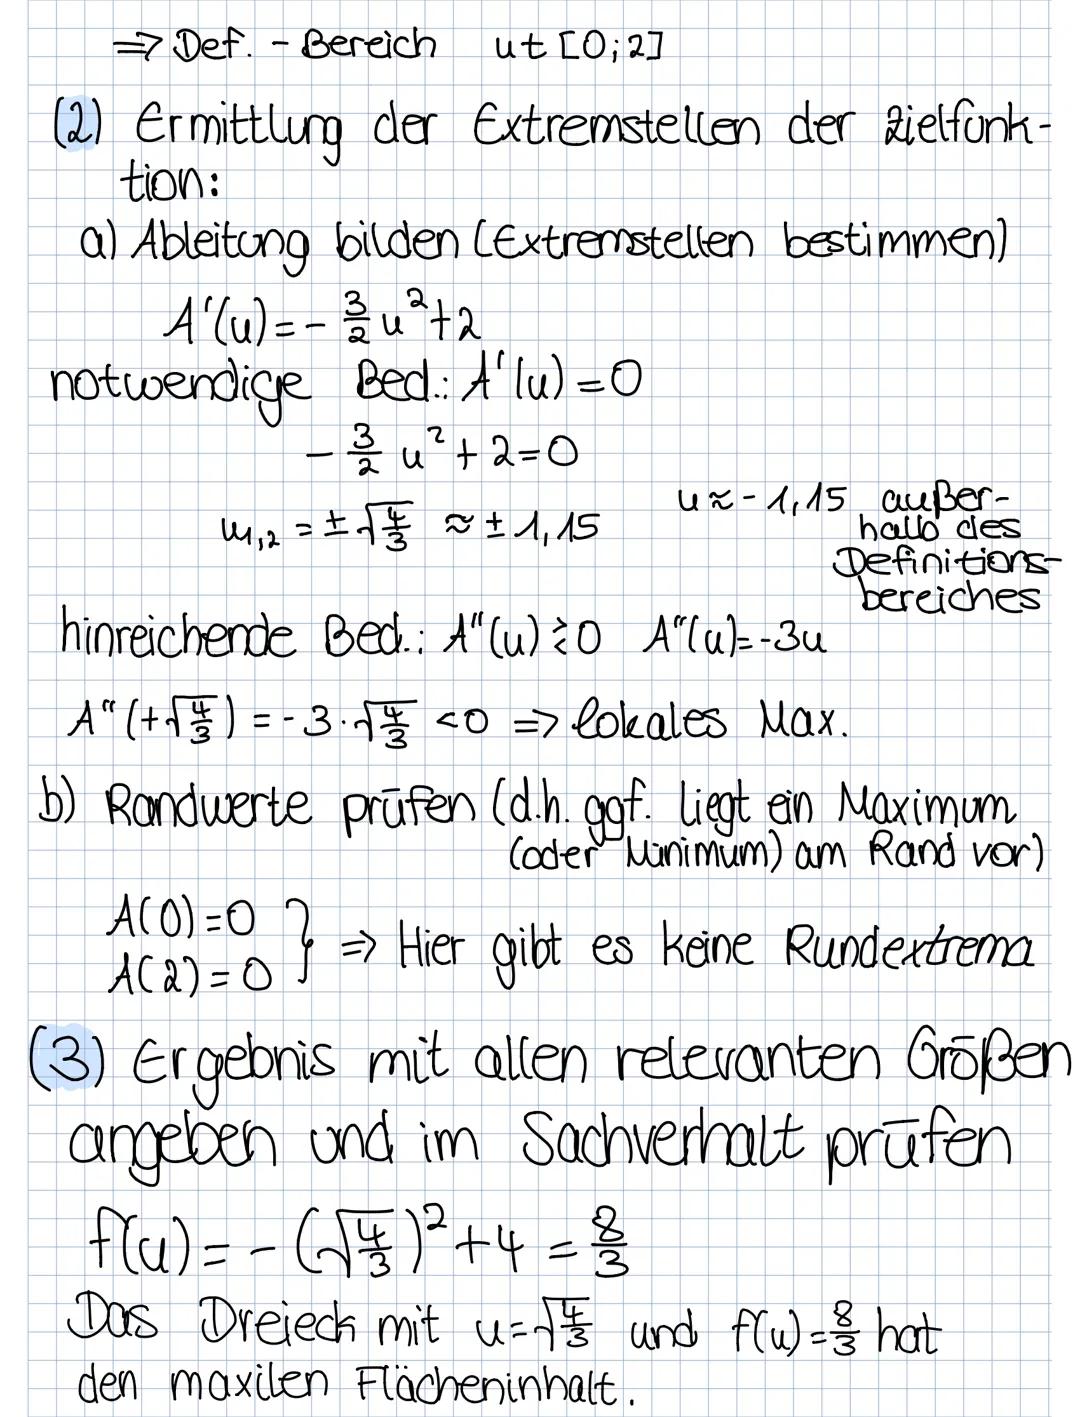 ⇒ Def. - Bereich u ∈ [0;2]
(2) Ermittlung der Extremstellen der Zielfunk-
tion:
a) Ableitung bilden (Extremstellen bestimmen)
A'(u) = - 3/2 u² + 2
notwendige Bed.: A'(u) = 0
- 3/2 u² + 2 = 0
u1,2 = ± √(4/3) ≈ ± 1,15
u ≈ - 1,15 außer-
halb des
Definitions-
bereiches
hinreichende Bed.: A"(u) ≷ 0 A"(u) = -3u
A"(+√(4/3)) = -3 · √(4/3) < 0 ⇒ lokales Max.
b) Randwerte prüfen (d.h. ggf. liegt ein Maximum
(oder Minimum) am Rand vor)
A(0) = 0
A(2) = 0 } ⇒ Hier gibt es keine Rundextrema
(3) Ergebnis mit allen relevanten Größen
angeben und im Sachverhalt prüfen
f(u) = - (√(4/3))² + 4 = 8/3
Das Dreieck mit u = √(4/3) und f(u) = 8/3 hat
den maxilen Flächeninhalt.